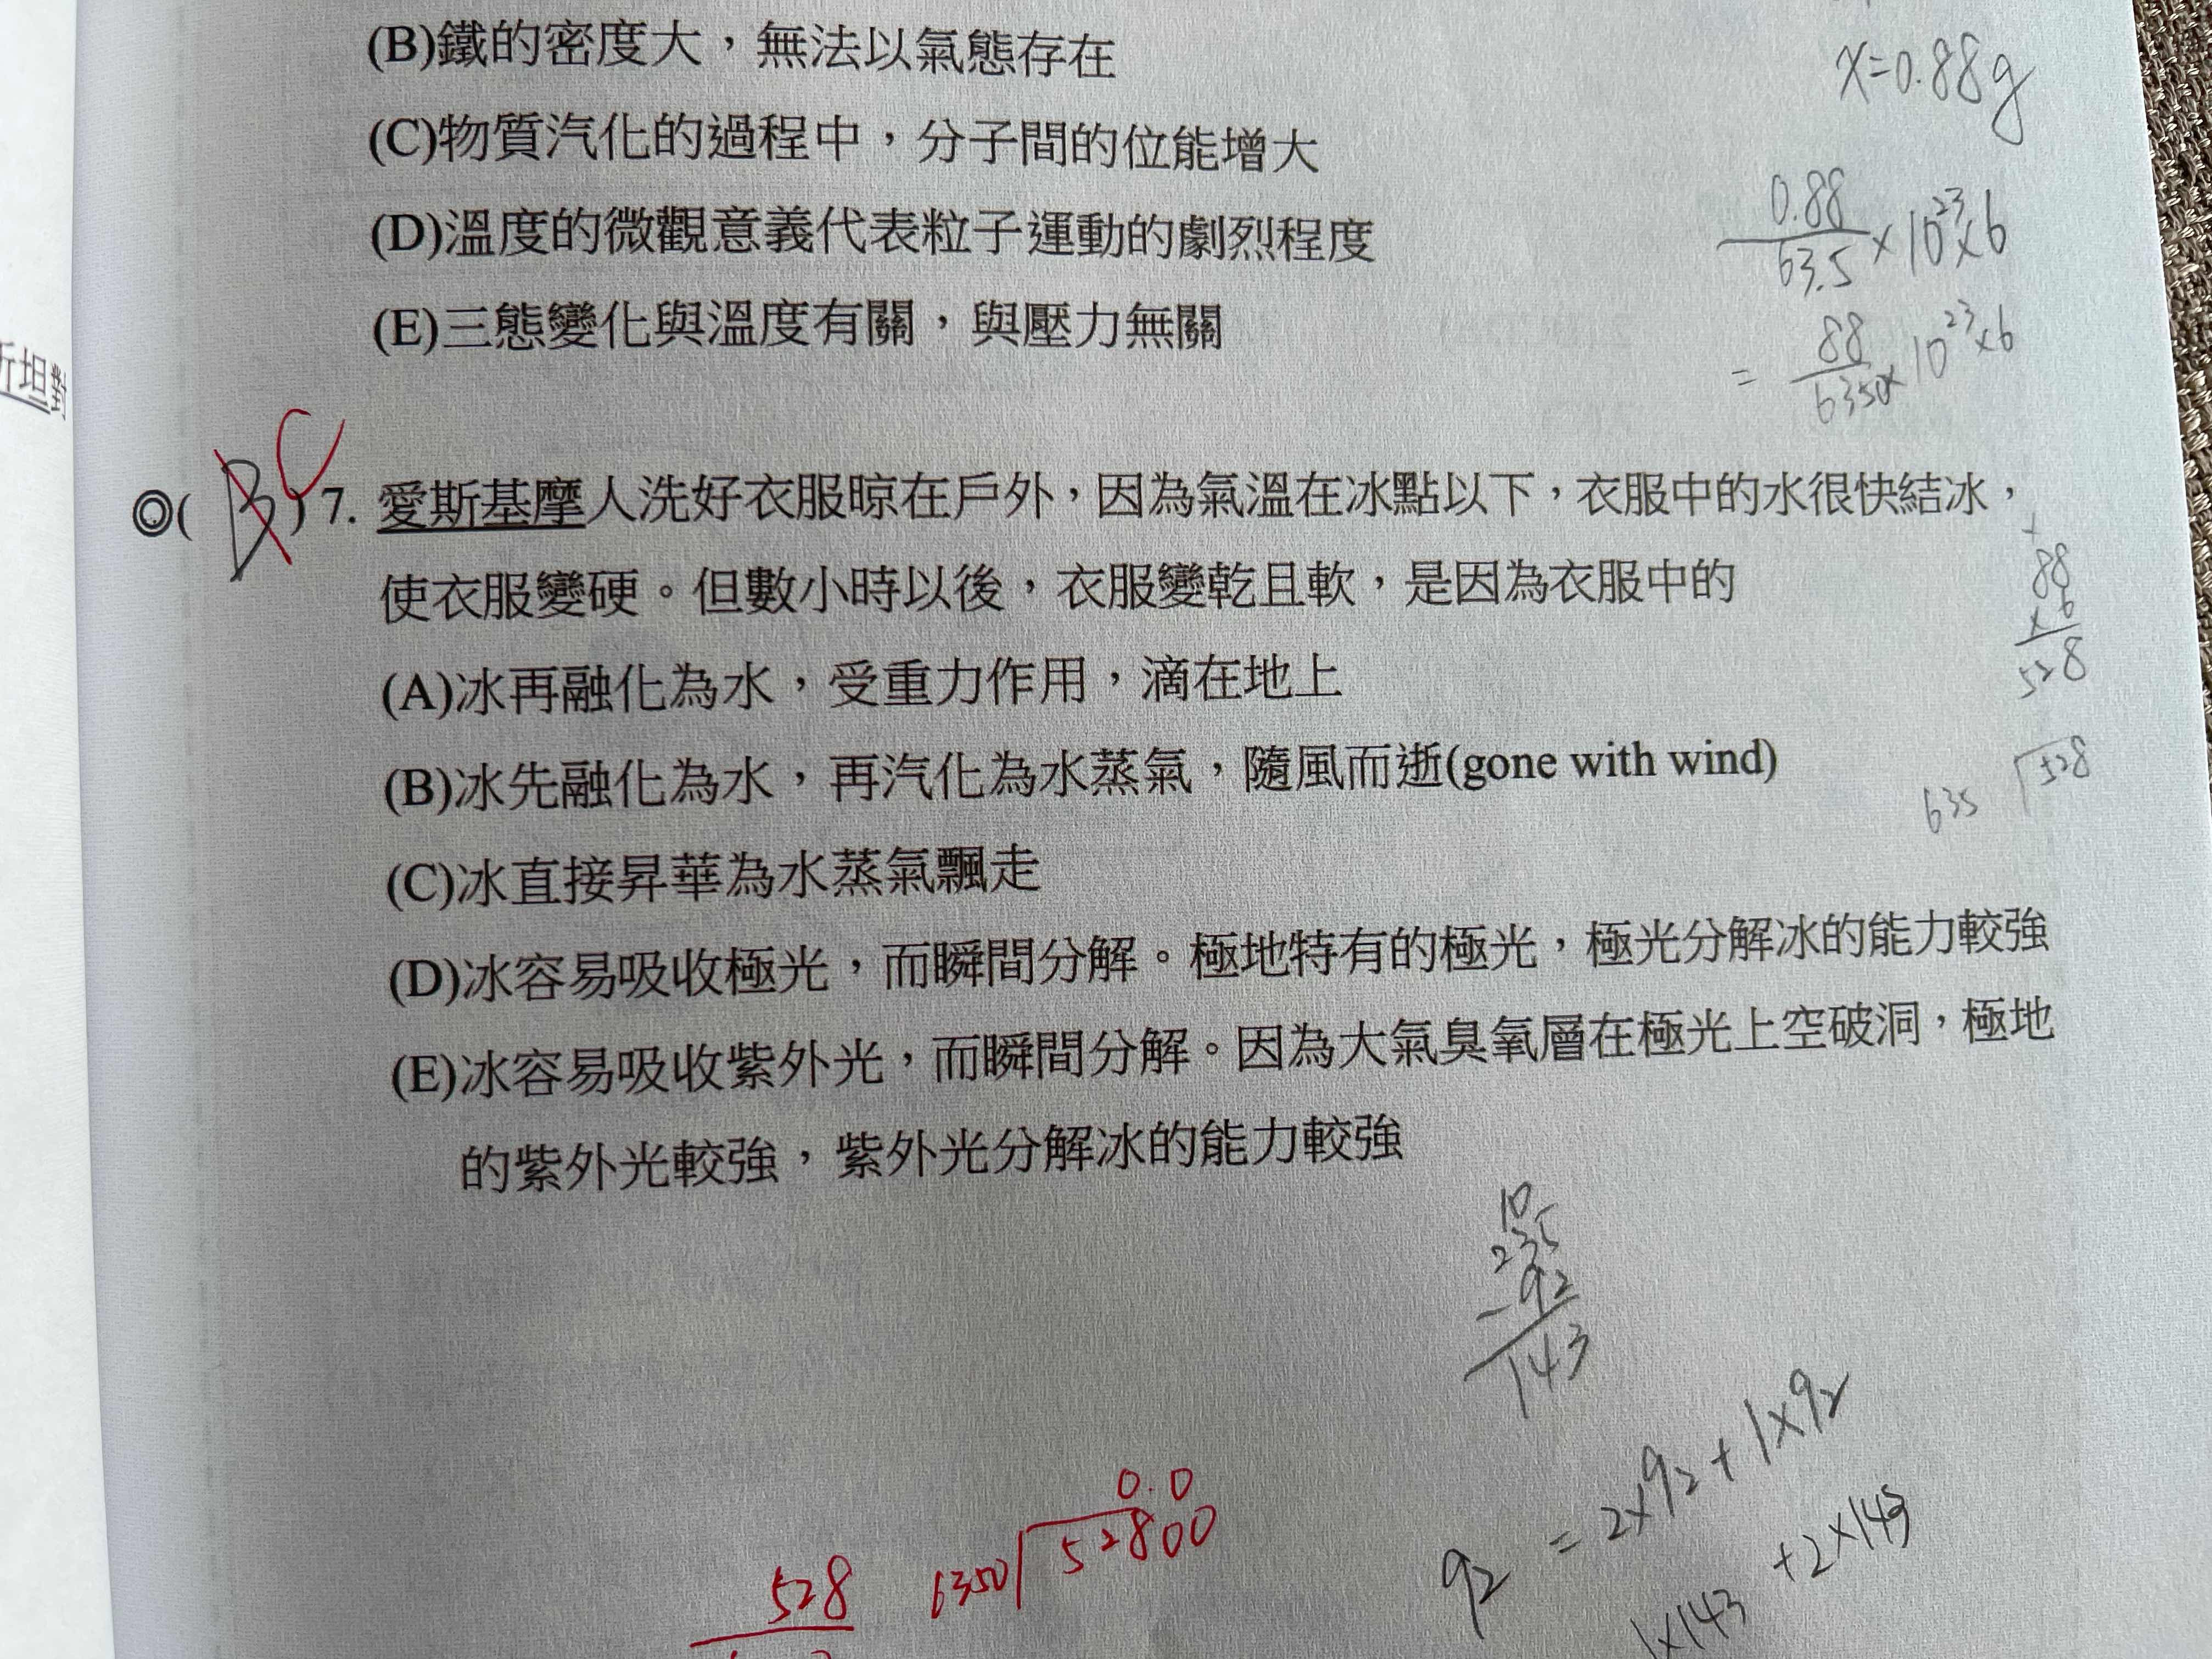 (B)鐵的密度大，無法以氣態存在
x=0.88g
(C)物質汽化的過程中，分子間的位能增大
(D)溫度的微觀意義代表粒子運動的劇烈程度
0.88
63.5 × 10^23 × 6
(E)三態變化與溫度有關，與壓力無關
= 88
6350 × 10^23 × 6
坦對
◎( B ) C 7. 愛斯基摩人洗好衣服晾在戶外，因為氣溫在冰點以下，衣服中的水很快結冰，
使衣服變硬。但數小時以後，衣服變乾且軟，是因為衣服中的
88
× 6
528
(A)冰再融化為水，受重力作用，滴在地上
(B)冰先融化為水，再汽化為水蒸氣，隨風而逝(gone with wind)
635 528
(C)冰直接昇華為水蒸氣飄走
(D)冰容易吸收極光，而瞬間分解。極地特有的極光，極光分解冰的能力較強
(E)冰容易吸收紫外光，而瞬間分解。因為大氣臭氧層在極光上空破洞，極地
的紫外光較強，紫外光分解冰的能力較強
10
235
- 92
143
92 = 2×92 + 1×92
1×143 + 2×143
0.0
6350 52800
528